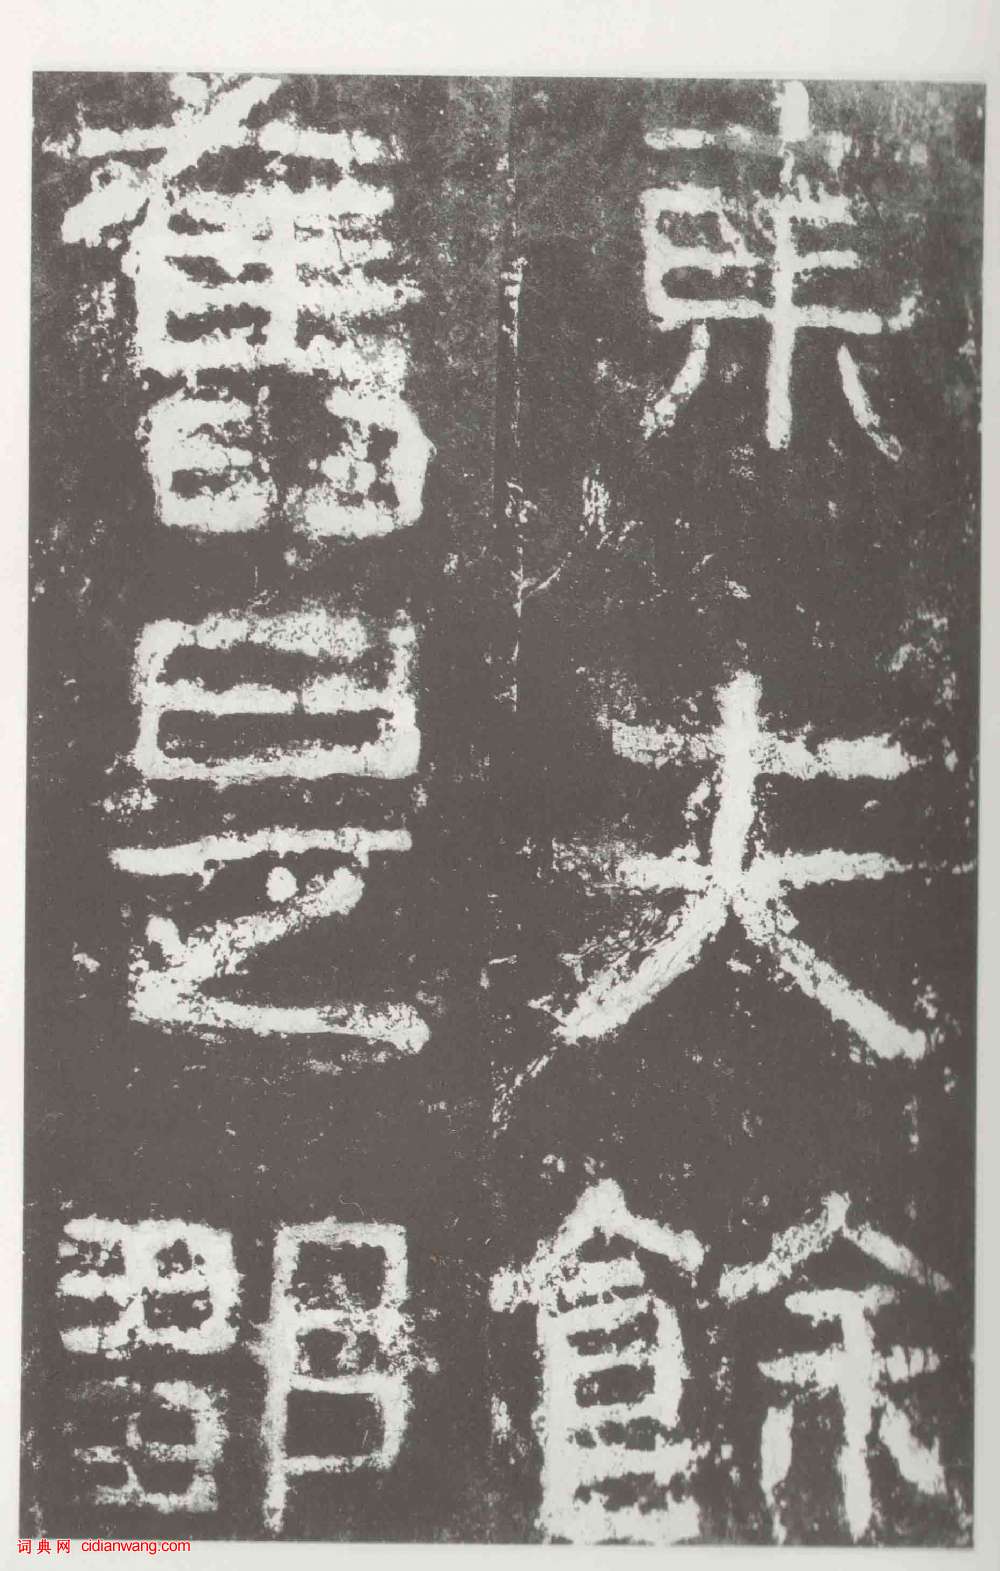 東夫餘
舊是鄒
词典网 cidianwang.com